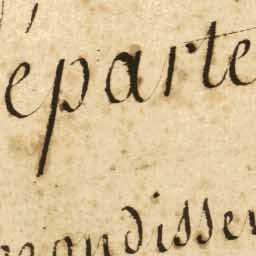 éparte
ondisse